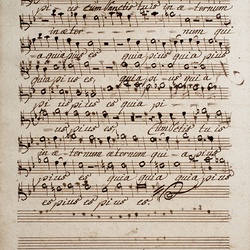 pi us Cum Sanctis tuis in æ ternum
in æter num qui
a quia pius es, quia pi us quia pius
quia pius es, quia pi us qui a
pi us pius es quia pi
us pius es, Cum Sctis tu is
in æ ternum æternum qui a pius
pius es quia quia quia pius
es pius es pi us es.